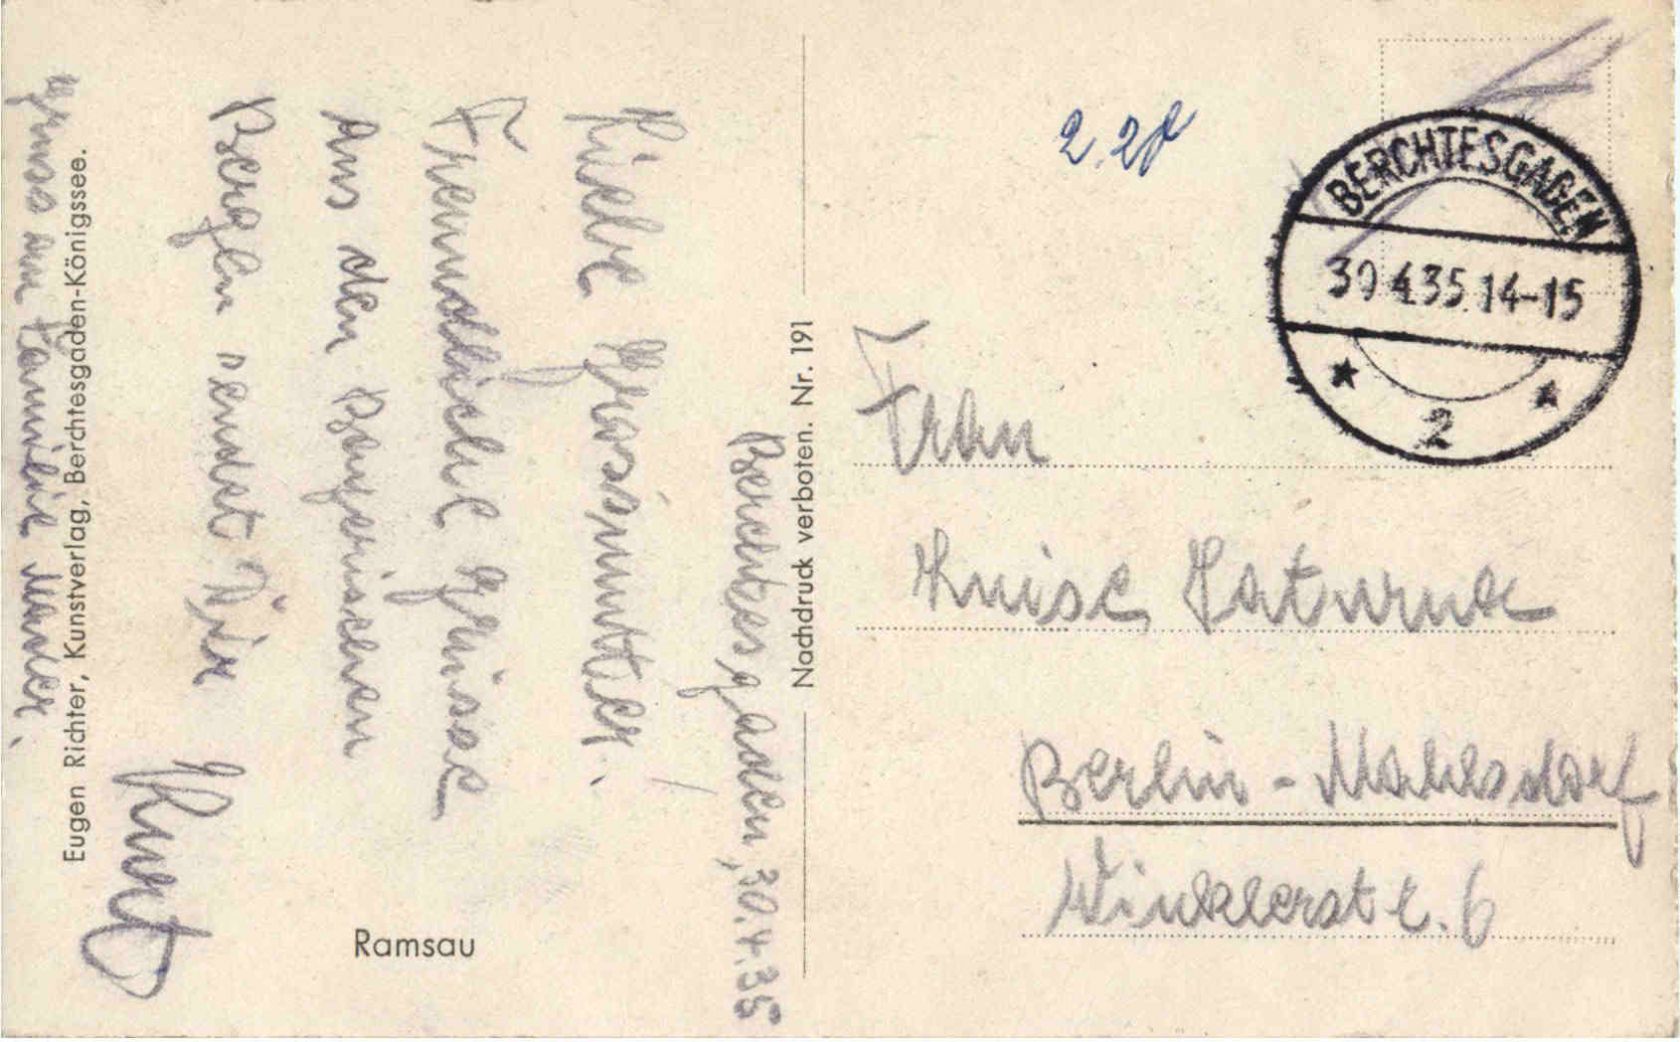 Berchtesgaden, 30.4.35
Liebe Grossmutter.
Freundliche Grüsse
aus den Bayerischen
Bergen sendet Dir
Kurt
Gruss an Familie
Eugen Richter, Kunstverlag, Berchtesgaden-Königssee.
Ramsau
Nachdruck verboten. Nr. 191
2.20
BERCHTESGADEN
30 4.35.14-15
2
Frau
Luise
Berlin - Mahlsdorf
Winklerstr. 6